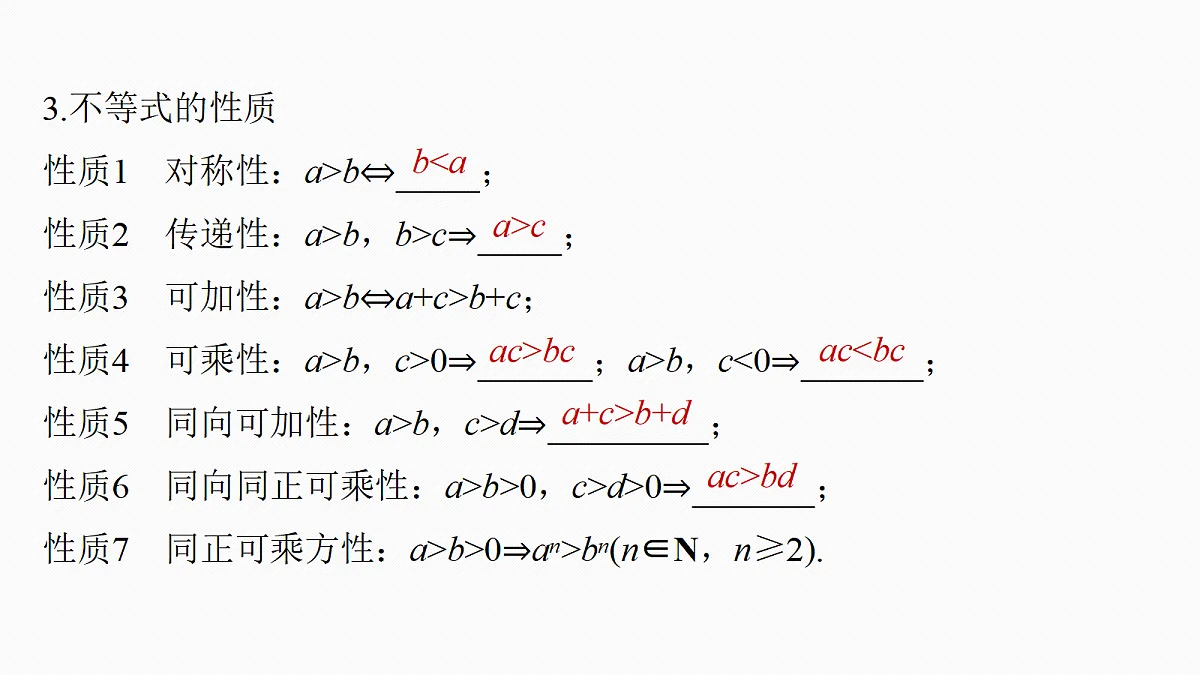 3.不等式的性质
性质1　对称性：a>b⇔b<a；
性质2　传递性：a>b，b>c⇒a>c；
性质3　可加性：a>b⇔a+c>b+c；
性质4　可乘性：a>b，c>0⇒ac>bc；a>b，c<0⇒ac<bc；
性质5　同向可加性：a>b，c>d⇒a+c>b+d；
性质6　同向同正可乘性：a>b>0，c>d>0⇒ac>bd；
性质7　同正可乘方性：a>b>0⇒aⁿ>bⁿ(n∈N，n≥2).